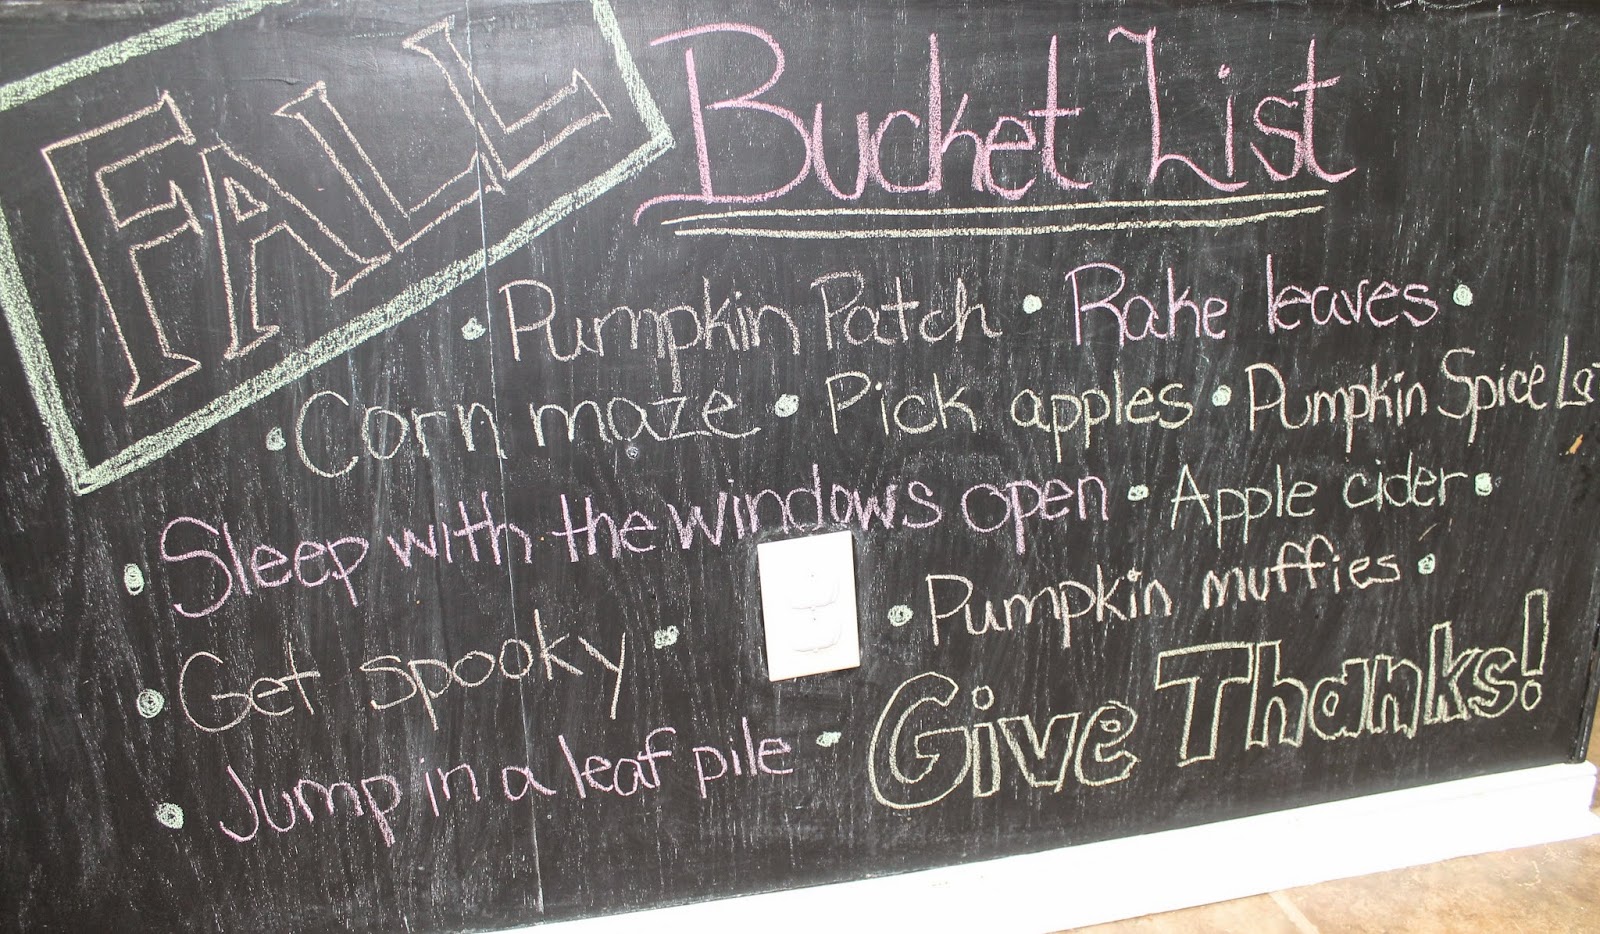 FALL Bucket List
• Pumpkin Patch • Rake leaves •
• Corn maze • Pick apples • Pumpkin Spice La
• Sleep with the windows open • Apple cider •
• Get spooky • • Pumpkin muffies •
• Jump in a leaf pile • Give Thanks!